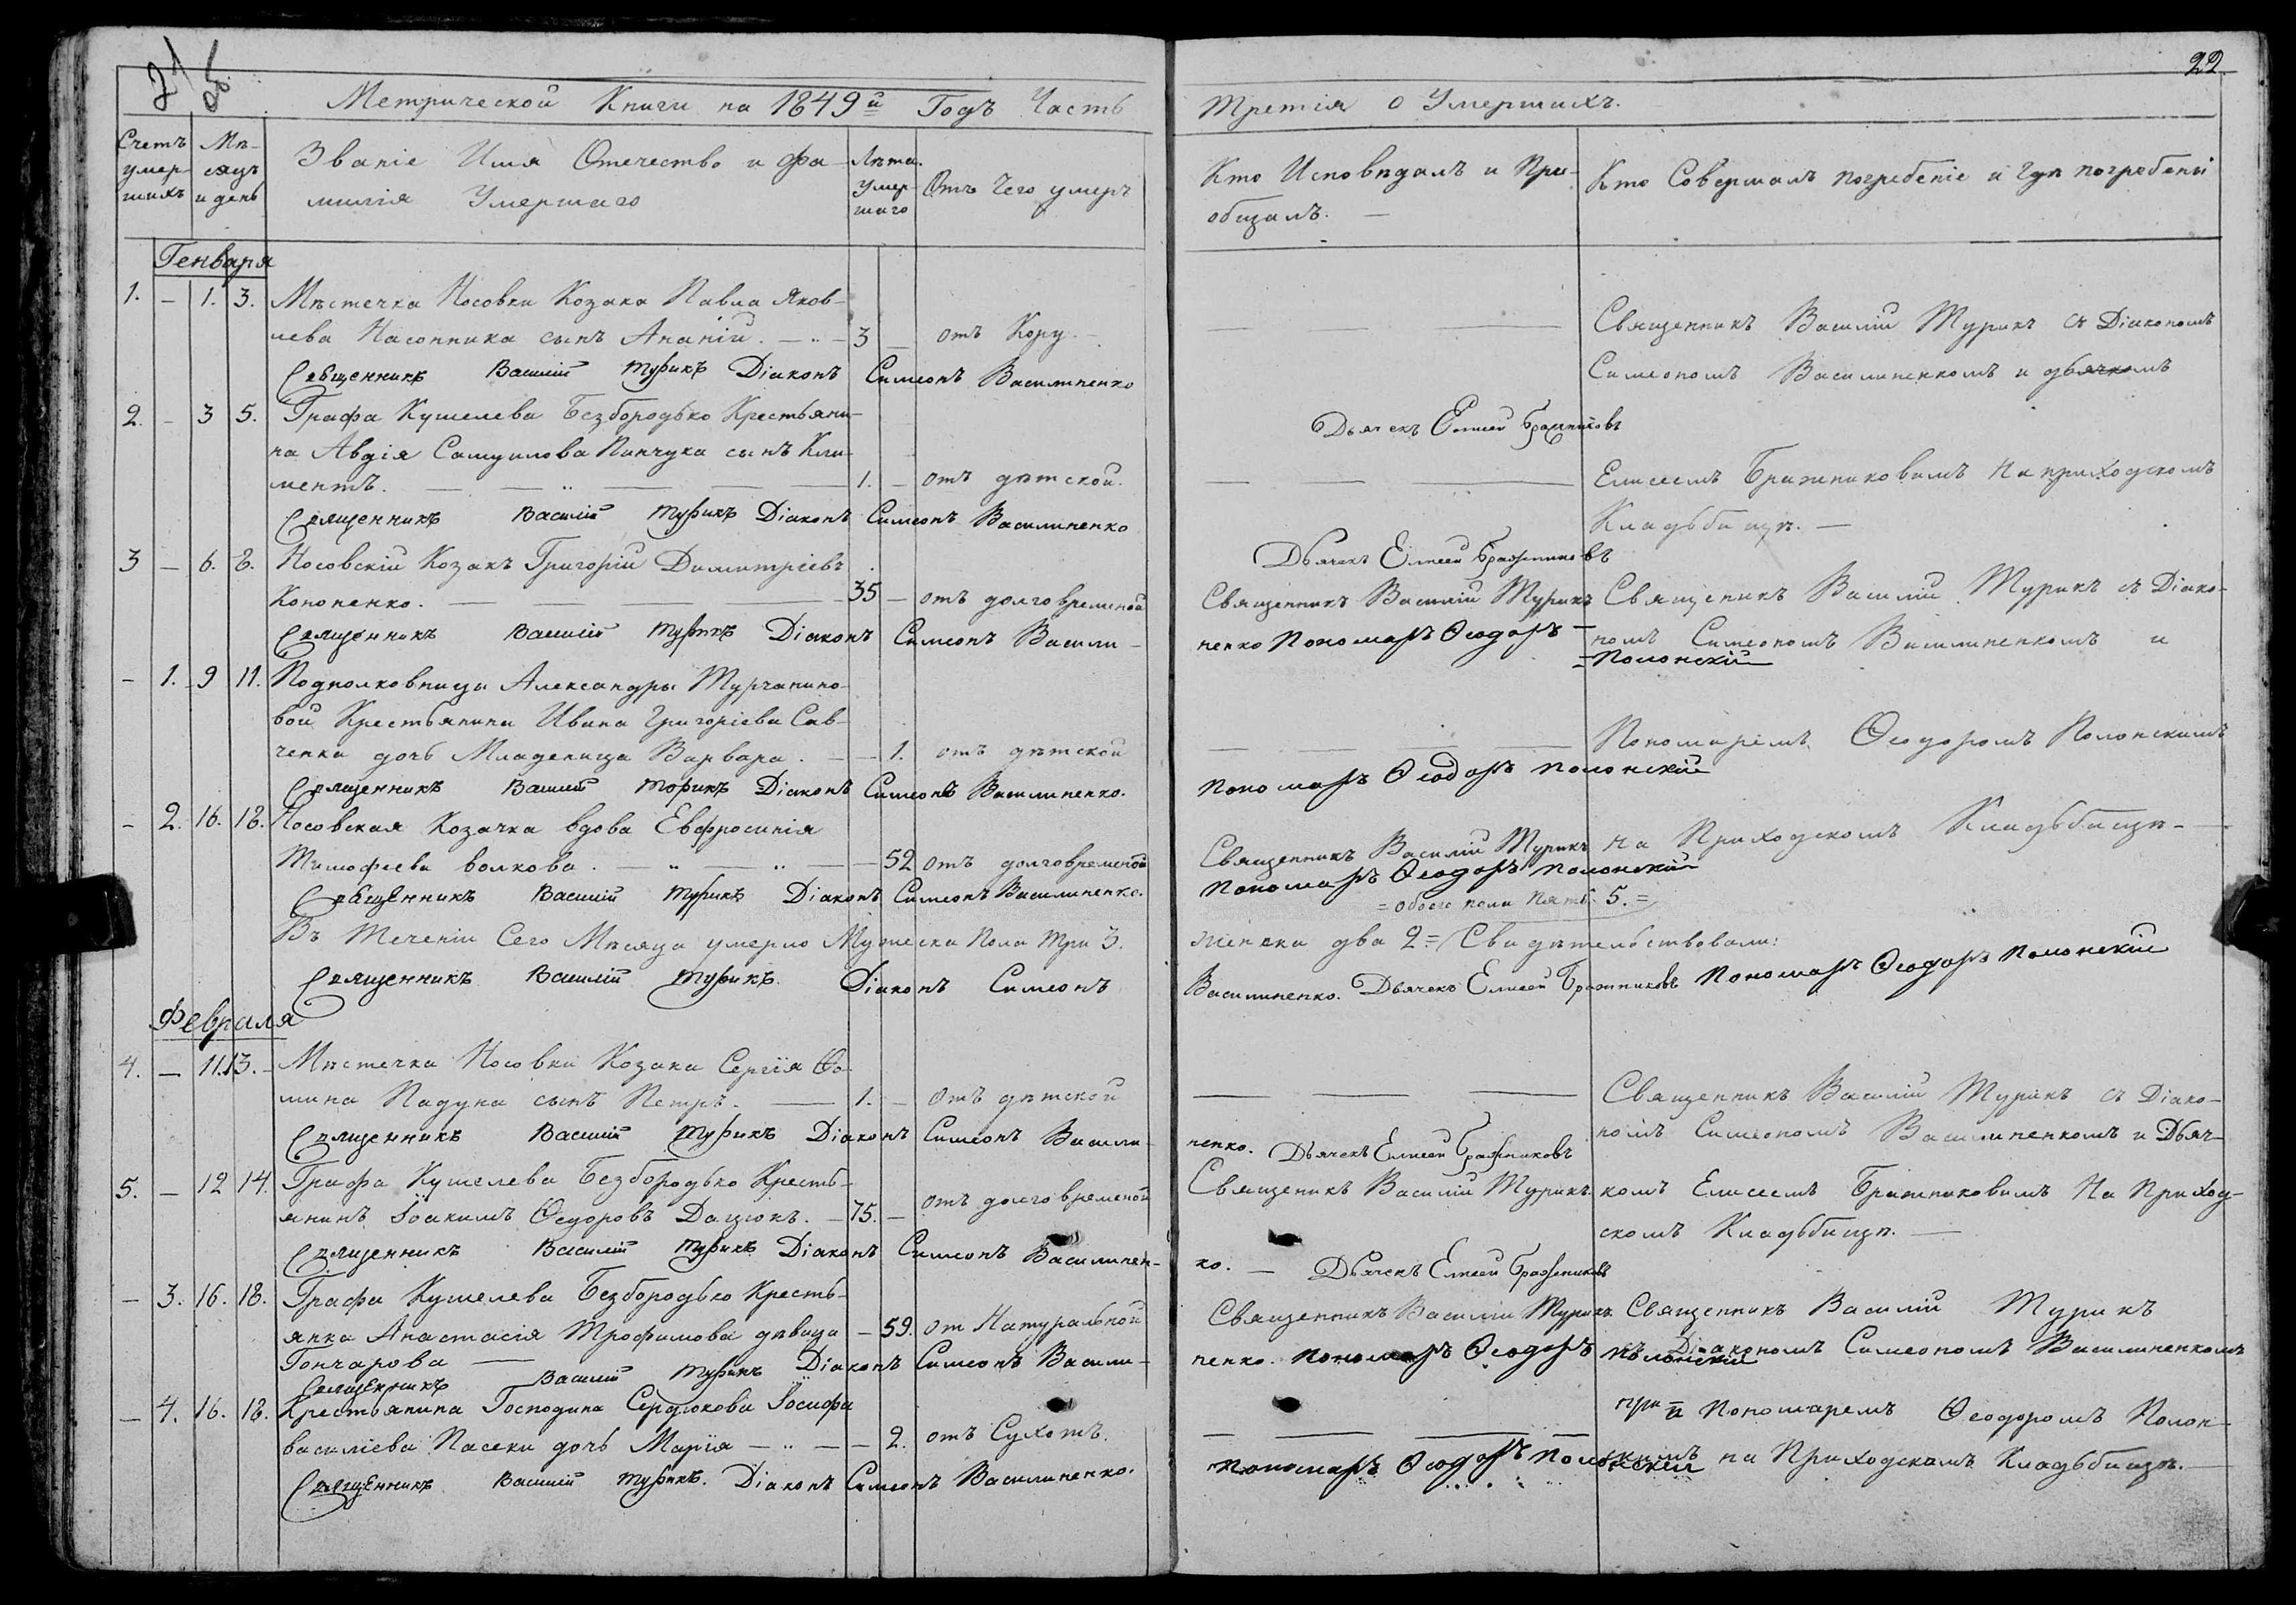 22
Метрической Книги на 1849й Годъ Часть
Третія о Умершихъ.
Счетъ умер-шихъ
Мѣ-сяцъ и день
Званіе Имя Отечество и Фа-
милія Умершаго
Лѣта умер-шаго
Отъ Чего умеръ
Кто Исповѣдалъ и При-
общалъ. —
Кто Совершалъ погребеніе и гдѣ погребены
Генваря
1. — 1. 3. Мѣстечка Носовки Козака Павла Яков-
лева Насонника сынъ Ананій. — 3 — отъ Кору.
Священникъ Василій Турикъ Діаконъ Симеонъ Василиненко
Дьячекъ Елисей Бражниковъ
Священникъ Василій Турикъ съ Діакономъ
Симеономъ Василиненкомъ и дьячкомъ
2. — 3 5. Графа Кушелева Безбородько Крестьяни-
на Авдія Самуилова Пинчука сынъ Кли-
ментъ. — 1. — отъ дѣтской.
Священникъ Василій Турикъ Діаконъ Симеонъ Василиненко
Дьячекъ Елисей Бражниковъ
Елисеемъ Бражниковымъ На приходскомъ
Кладьбищѣ. —
3 — 6. 8. Носовскій Козакъ Григорій Димитріевъ
Кононенко. — 35 — отъ долговременой
Священникъ Василій Турикъ
Священикъ Василій Турикъ съ Діако-
Священникъ Василій Турикъ Діаконъ Симеонъ Васили-
ненко Пономарь Ѳеодоръ —
= Полонскій
номъ Симеономъ Василиненкомъ и
— 1. 9 11. Подполковницы Александры Турчанино-
вой Крестьянина Ивана Григоріева Сав-
ченка дочь Младеница Варвара. — 1. отъ дѣтской
Пономаремъ Ѳеодоромъ Полонскимъ
Священникъ Василій Турикъ Діаконъ Симеонъ Василиненко.
Пономарь Ѳеодоръ Полонскій
— 2. 16. 18. Носовская Козачка вдова Евфросинія
Тимофеева волкова. — 52 отъ долговременой
Священникъ Василій Турикъ
на Приходскомъ Кладьбищѣ —
Священникъ Василій Турикъ Діаконъ Симеонъ Василиненко.
Пономарь Ѳеодоръ Полонскій
= обоего пола Пять 5. =
Въ Теченіи Сего Мѣсяца умерло Мужеска Пола три 3.
женска два 2 = Свидѣтельствовали:
Священникъ Василій Турикъ. Діаконъ Симеонъ
Василиненко. Дьячекъ Елисей Бражниковъ Пономарь Ѳеодоръ Полонскій
Февраля
4. — 11. 13. — Мѣстечка Носовки Козака Сергія Ѳо-
мина Падуна сынъ Петръ. — 1. — отъ дѣтской
Священникъ Василій Турикъ съ Діако-
Священникъ Василій Турикъ Діаконъ Симеонъ Васили-
ненко. Дьячекъ Елисей Бражниковъ
номъ Симеономъ Василиненкомъ и Дьяч-
5. — 12 14. Графа Кушелева Безбородько Кресть-
янинъ Іоакимъ Ѳедоровъ Дацюкъ. — 75. — отъ долговременой
Священикъ Василій Турикъ.
комъ Елисеемъ Бражниковымъ На Приход-
скомъ Кладьбищѣ. —
Священникъ Василій Турикъ Діаконъ Симеонъ Василинен-
ко. — Дьячекъ Елисей Бражниковъ
— 3. 16. 18. Графа Кушелева Безбородько Кресть-
янка Анастасія Трофимова дѣвица — 59. от Натуральной
Гончарова —
Священникъ Василій Турикъ
Священникъ Василій Турикъ
Священникъ Василій Турикъ Діаконъ Симеонъ Васили-
ненко. Пономарь Ѳеодоръ Полонскій
съ Діакономъ Симеономъ Василиненкомъ
— 4. 16. 18. Крестьянина Господина Сердюкова Іосифа
василіева Пасеки дочь Марія — 2. отъ Сухотъ.
при и Пономаремъ Ѳеодоромъ Полон-
скимъ на Приходскомъ Кладьбищѣ. —
Священникъ Василій Турикъ. Діаконъ Симеонъ Василиненко.
Пономарь Ѳеодоръ Полонскій